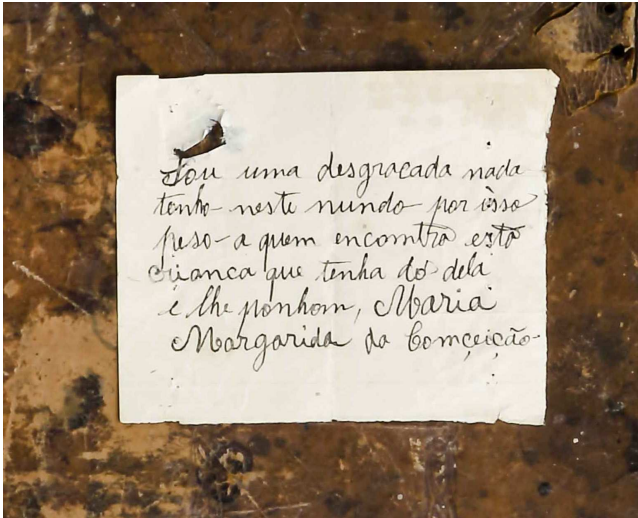 Sou uma desgracada nada
tenho neste nundo por isso
peso a quem encomtra esta
crianca que tenha dó dela
e lhe ponhom, Maria
Margarida da Comçeição